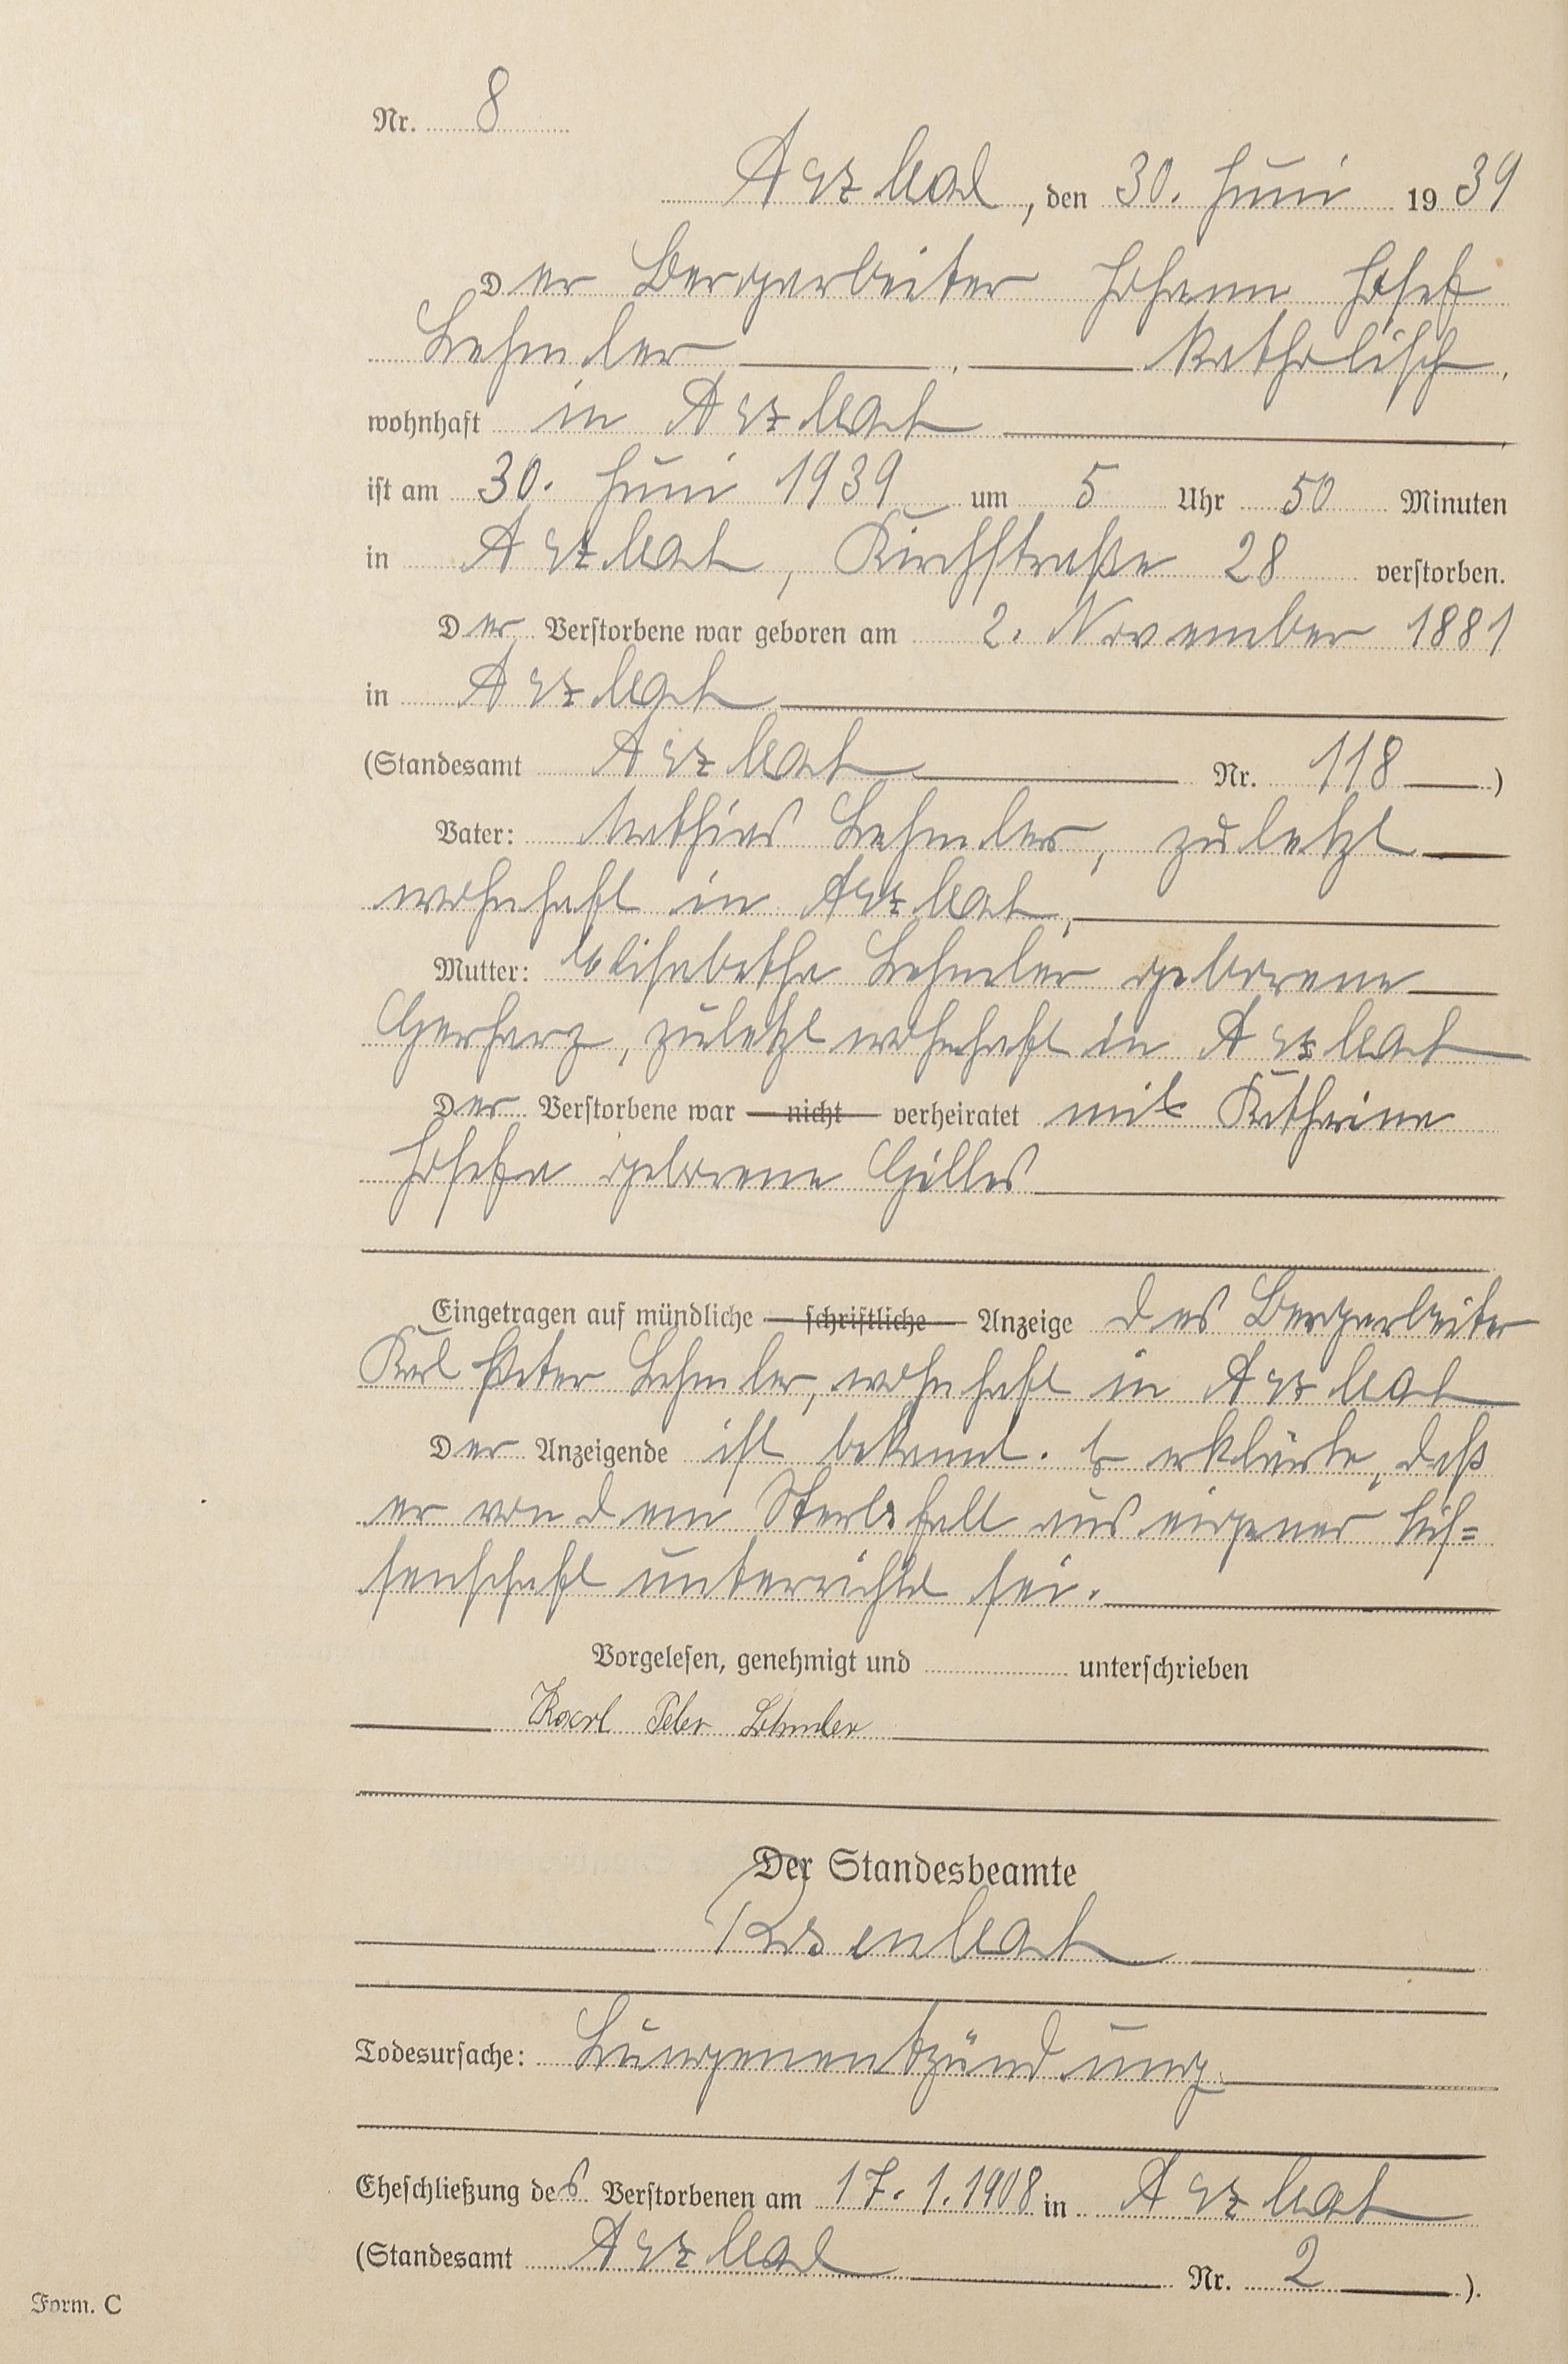 Nr. 8
Arzbach, den 30. Juni 1939
Der Bergarbeiter Johann Josef
Lehmler katholisch,
wohnhaft in Arzbach
ist am 30. Juni 1939 um 5 Uhr 50 Minuten
in Arzbach, Kirchstraße 28 verstorben.
Der Verstorbene war geboren am 2. November 1881
in Arzbach
(Standesamt Arzbach Nr. 118)
Vater: Mathias Lehmler, zuletzt
wohnhaft in Arzbach,
Mutter: Elisabetha Lehmler geborene
Gerharz, zuletzt wohnhaft in Arzbach
Der Verstorbene war nicht verheiratet mit Katharina
Josefa geborene Gilles
Eingetragen auf mündliche schriftliche Anzeige des Bergarbeiter
Karl Peter Lehmler, wohnhaft in Arzbach
Der Anzeigende ist bekannt. Er erklärte, daß
er von dem Sterbefall aus eigener Wis=
senschaft unterrichtet sei.
Vorgelesen, genehmigt und unterschrieben
Karl Peter Lehmler
Der Standesbeamte
Rosenbach
Todesursache: Lungenentzündung.
Eheschließung des Verstorbenen am 17.1.1908 in Arzbach
(Standesamt Arzbach Nr. 2).
Form. C